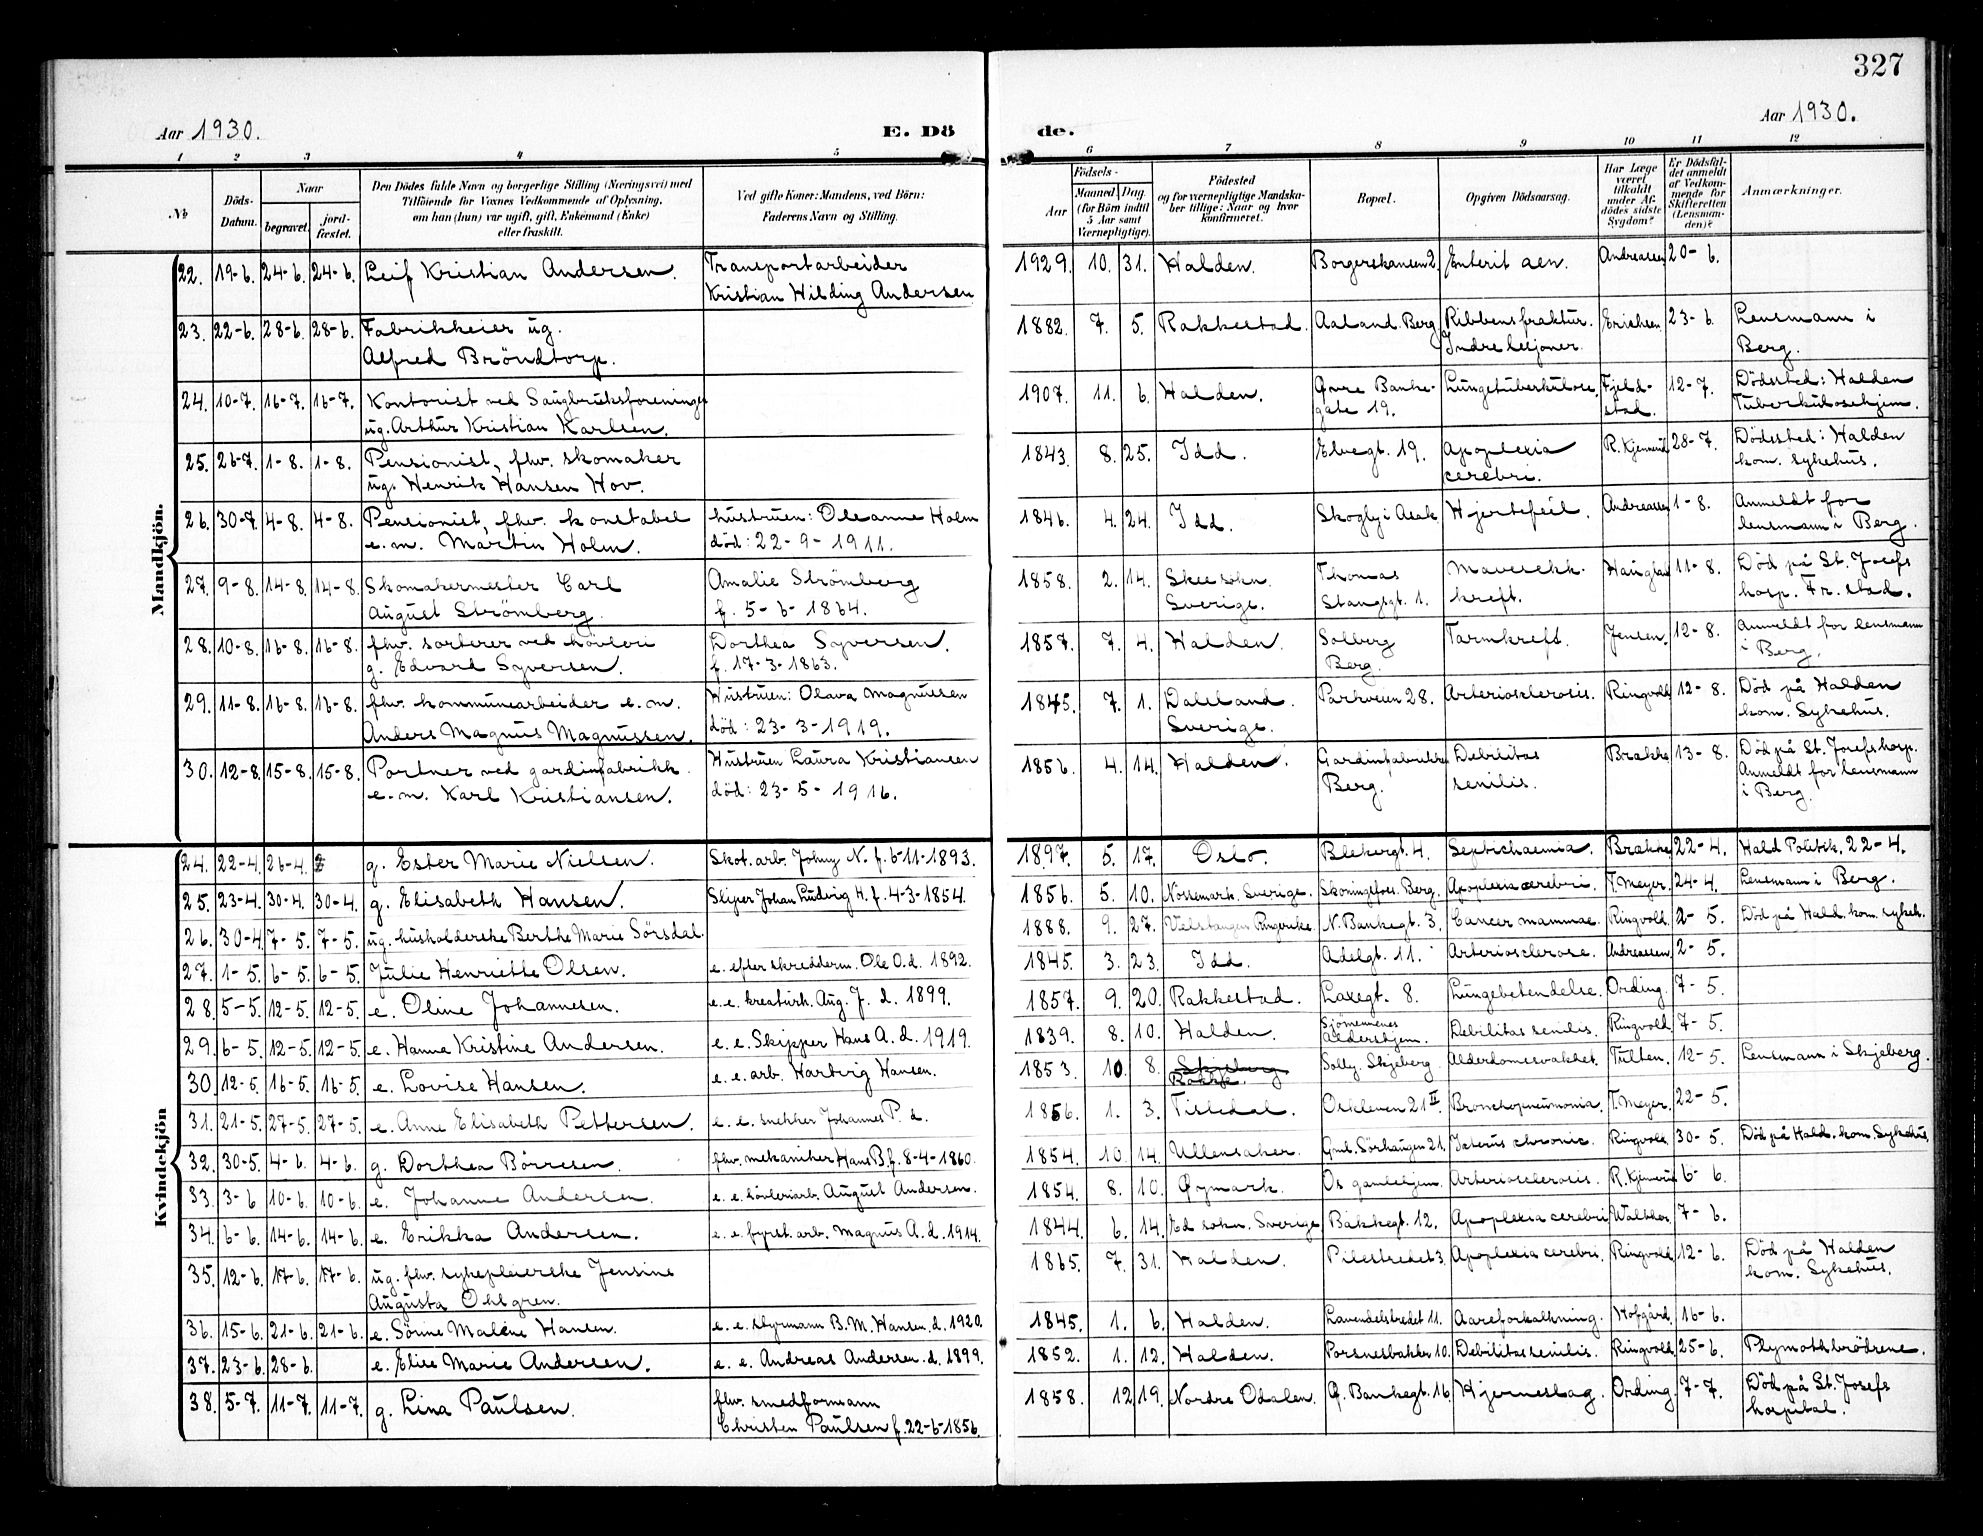 327
Aar 1930. E. Dö de. Aar 1930.
1 2 3 4 5 6 7 8 9 10 11 12
No Döds-Datum. Naar begravet. jord-fæstet. Den Dödes fulde Navn og borgerlige Stilling (Næringsvei) med Tilföiende for Voxnes Vedkommende af Oplysning, om han (hun) var ugift, gift, Enkemand (Enke) eller fraskilt. Ved gifte Koner: Mandens, ved Börn: Faderens Navn og Stilling. Födsels- Aar Maaned Dag. (for Börn indtil 5 Aar samt Værnepligtige). Födested og for værnepligtige Mandskaber tillige: Naar og hvor konfirmeret. Bopæl. Opgiven Dödsaarsag. Har Læge været tilkaldt under Afdödes sidste Sygdom? Er Dödsfaldet anmeldt af Vedkommende for Skifteretten (Lensmanden)? Anmærkninger.
Mandkjön.
22. 19-6. 24-6. 24-6. Leif Kristian Andersen. Transportarbeider Kristian Hilding Andersen 1929. 10. 31. Halden. Borgerskansen 2. Enterit acn. Andreassen 20-6.
23. 22-6. 28-6. 28-6. Fabrikkeier ug. Alfred Bröndtorp. 1882. 7. 5. Rakkestad. Aaland. Berg Ribbensfraktur. Indre lesjoner. Erichsen 23-6. Lensmann i Berg.
24. 10-7. 16-7. 16-7. Kontorist ved Saugbruksforeningen ug. Arthur Kristian Karlsen. 1907. 11. 6. Halden. Øvre Bankegate 19. Lungetuberkulose. Fjeldstad. 12-7. Dödssted: Halden Tuberkulosehjem.
25. 26-7. 1-8. 1-8. Pensionist, fhv. skomaker ug. Henrik Hansen Hov. 1843. 8. 25. Idd. Elvegt. 19. Apoplexia cerebri. R. Kjennerud 28-7. Dödssted: Halden kom. sykehus.
26. 30-7. 4-8. 4-8. Pensionist, fhv. konstabel e.m. Martin Holm. hustruen: Oleanne Holm död: 22-9-1911. 1846. 4. 24. Idd. Skogly i Asak. Hjertefeil. Andreassen 1-8. Anmeldt for lensmann i Berg.
27. 9-8. 14-8. 14-8. Skomakermester Carl August Strömberg. Amalie Strömberg f. 5-6-1864. 1858. 2. 14. Skee sokn. Sverige. Thomas Stangsgt. 1. Mavesekk-kreft. 11-8. Död på St. Josefs hosp. Fr.stad.
28. 10-8. 16-8. 16-8. fhv. sorterer ved hövleri g. Edvard Syversen. Dorthea Syversen. f. 17-3-1863. 1857. 7. 4. Halden. Solberg Berg. Tarmkreft. Jensen. 12-8. Anmeldt for lensmann i Berg.
29. 11-8. 16-8. 16-8. fhv. kommunearbeider e.m. Anders Magnus Magnussen. Hustruen: Olava Magnussen död: 23-3-1919. 1845. 7. 1. Dalsland. Sverige. Parkveien 28. Arteriosclerosis. Ringvold 12-8. Död på Halden kom. Sykehus.
30. 12-8. 15-8. 15-8. Portner ved gardinfabrikk. e.m. Karl Kristiansen. Hustruen Laura Kristiansen död: 23-5-1916. 1856. 4. 14. Halden. Gardinfabrikken Berg. Debilitas senilis. Brække 13-8. Död på St. Josefs hosp. Anmeldt for lensmann i Berg.
Kvindekjön
24. 22-4. 26-4. g. Ester Marie Nielsen. Skot. arb. Johny N. f. 6-11-1893. 1897. 5. 17. Oslo. Blekergt. 4. Septichaemia. Brække 22-4. Hald Politik. 22-4.
25. 23-4. 30-4. 30-4. g. Elisabeth Hansen. Sliper Johan Ludvig H. f. 4-3-1854. 1856. 5. 10. Nössemark. Sverige. Skoningsfoss. Berg. Apoplexia cerebri. T. Meyer. 24-4. Lensmann i Berg.
26. 30-4. 7-5. 7-5. ug. husholderske Berthe Marie Sörsdal. 1888. 9. 27. Ringerike. N. Bankegt. 3. Cancer mammae. Ringvold. 2-5. Död på Hald. kom. sykeh.
27. 1-5. 6-5. 6-5. Julie Henriette Olsen. e. efter skredderm. Ole O. d. 1892. 1845. 3. 23. Idd. Adelgt. 11. Arteriosclerose. Andreassen. 2-5.
28. 5-5. 12-5. 12-5. e. Oline Johannesen. e. e. kreaturh. Aug. J. d. 1899. 1857. 9. 20. Rakkestad. Laxegt. 8. Lungebetendelse. Ording. 7-5.
29. 6-5. 12-5. 12-5. e. Hanna Kristine Andersen. e. e. Skipper Hans A. d. 1919. 1839. 8. 10. Halden. Sjömennenes Aldershjem. Debilitas senilis. Ringvold 7-5.
30 12-5. 16-5. 16-5. e. Lovise Hansen. e. e. arb. Hartvig Hansen. 1853. 10. 8. Skjeberg Rokke. Solly. Skjeberg. Alderdomssvakhet. Tulten. 12-5. Lensmann i Skjeberg.
31. 21-5. 27-5. 27-5. e. Anne Elisabeth Pettersen. e. e. snekker Johannes P. d. 1856. 1. 3. Tistedal. Oskleven 21 II. Bronchopneumonia. T. Meyer. 22-5.
32. 30-5. 4-6. 4-6. g. Dorthea Börresen. fhv. mekaniker Hans B. f. 8-4-1860. 1854. 10. 14. Ullensaker. Gml. Sörhaugen 21. Icterus chronic. Ringvold. 30-5. Död på Hald. kom. Sykehus.
33. 3-6 10-6. 10-6. e. Johanne Andersen. e. e. hövleriarb. August Andersen. 1854. 8. 10. Øymark. Os gamlehjem. Arteriosclerosis. R. Kjennerud 6-6.
34. 6-6. 14-6. 14-6. e. Erikka Andersen. e. e. fyrst. arb. Magnus A. d. 1914. 1844. 6. 14. Ed sokn. Sverige Bakkegt. 12. Apoplexia cerebri Walther. 7-6.
35. 12-6. 17-6. 17-6. ug. fhv. sykepleierske Jensine Augusta Ohlgren. 1865. 7. 31. Halden. Pilestredet 3. Apoplexia cerebri. Ringvold. 12-6. Död på Halden kom. Sykehus.
36. 15-6. 21-6. 21-6. e. Sörine Malene Hansen. e. e. styrmann B. M. Hansen. d. 1920. 1845. 1. 6. Halden. Lavendelstredet 11. Aareforkalkning. Hofgård. 16-6.
37. 23-6. 28-6. e. Elise Marie Andersen. e. e. Andreas Andersen. d. 1899. 1852. 1. 12. Halden. Porsnesbakken 10. Debilitas senilis. Ringvold. 25-6. Plymothbrödrene.
38. 5-7. 11-7. 11-7. g. Lina Paulsen. fhv. smedformann Christen Paulsen f. 22-6-1856. 1858. 12 19. Nordre Odalen. Ø. Bankegt. 16. Hjerneslag. Ording. 7-7. Död på St. Josefs hospital.